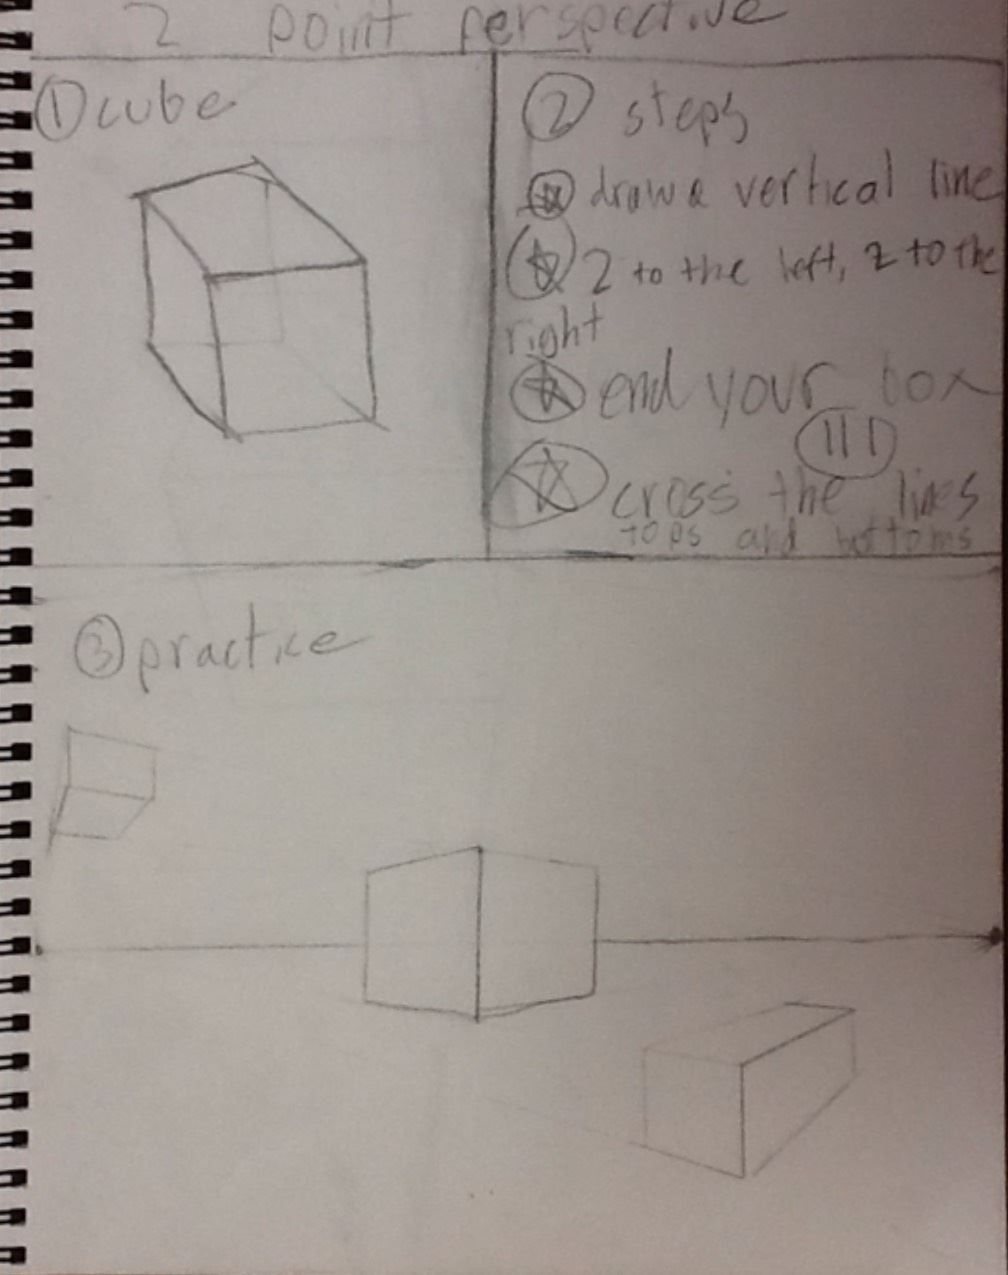 2 point perspective
① cube
② steps
draw a vertical line
2 to the left, 2 to the
right
end your box
cross the lines
tops and bottoms
③ practice